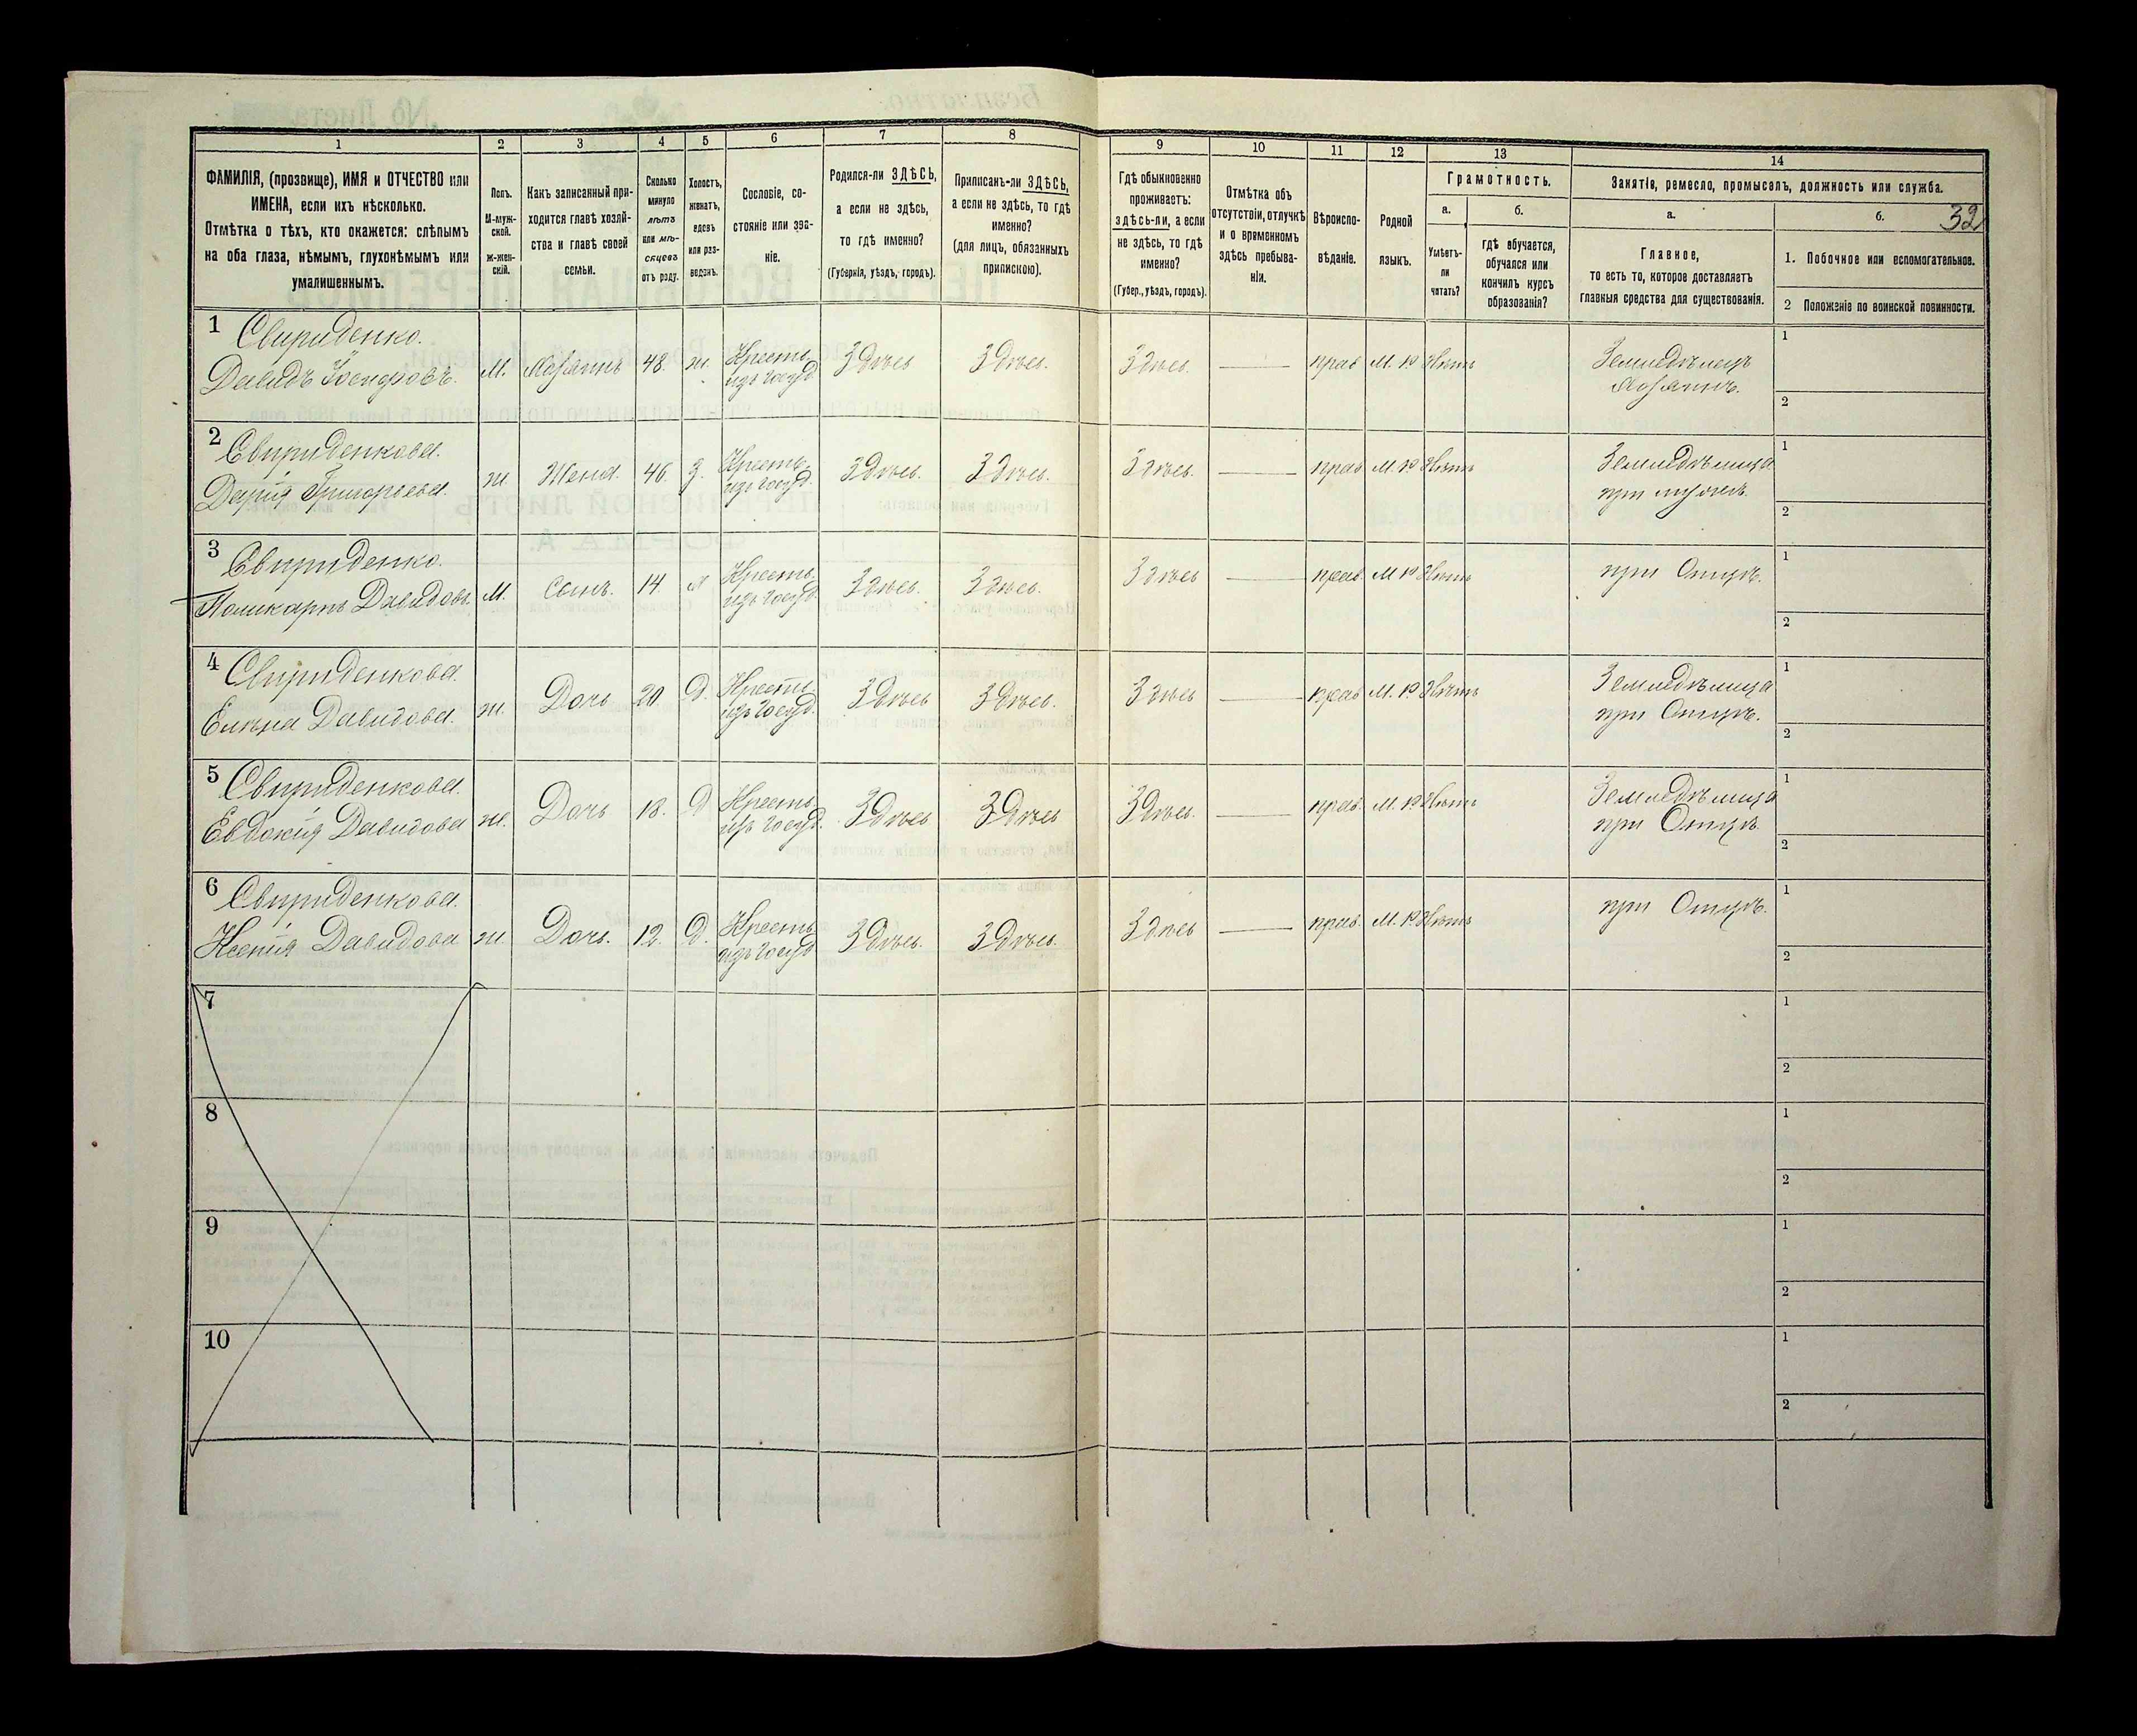 1
2
3
4
5
6
7
8
ФАМИЛІЯ, (прозвище), ИМЯ и ОТЧЕСТВО или
ИМЕНА, если ихъ нѣсколько.
Отмѣтка о тѣхъ, кто окажется: слѣпымъ
на оба глаза, нѣмымъ, глухонѣмымъ или
умалишеннымъ.
Полъ.
М-муж-
ской.
Ж-жен-
скій.
Какъ записанный при-
ходится главѣ хозяй-
ства и главѣ своей
семьи.
Сколько
минуло
лѣтъ
или мѣ-
сяцевъ
отъ роду.
Холостъ,
женатъ,
вдовъ
или раз-
веденъ.
Сословіе, со-
стояніе или зва-
ніе.
Родился-ли ЗДѢСЬ,
а если не здѣсь,
то гдѣ именно?
(Губернія, уѣздъ, городъ).
Приписанъ-ли ЗДѢСЬ,
а если не здѣсь, то гдѣ
именно?
(для лицъ, обязанныхъ
припискою).
9
10
11
12
13
14
Гдѣ обыкновенно
проживаетъ:
здѣсь-ли, а если
не здѣсь, то гдѣ
именно?
(Губер., уѣздъ, городъ).
Отмѣтка объ
отсутствіи, отлучкѣ
и о временномъ
здѣсь пребыва-
ніи.
Вѣроиспо-
вѣданіе.
Родной
языкъ.
Грамотность.
а.
б.
Умѣетъ-
ли
читать?
гдѣ обучается,
обучался или
кончилъ курсъ
образованія?
Занятіе, ремесло, промыселъ, должность или служба.
а.
б.
32
Главное,
то есть то, которое доставляетъ
главныя средства для существованія.
1. Побочное или вспомогательное.
2 Положеніе по воинской повинности.
1 Свириденко.
Давидъ
М. Хозяинъ 48. ж. Крестьян.
изъ госуд.
Здѣсь Здѣсь. Здѣсь. — прав М. р Нѣтъ
Земледѣлецъ
Хозяинъ.
1
2
2 Свириденкова.
Дарія Григорьева.
ж. Жена. 46. З. Крестьян.
изъ госуд.
Здѣсь. Здѣсь. Здѣсь. — прав М. р Нѣтъ
Земледѣлица
при мужѣ.
1
2
3 Свириденко.
Поликарпъ Давидовъ.
М. Сынъ. 14. Крестьян.
изъ госуд.
Здѣсь. Здѣсь. Здѣсь — прав. М р Нѣтъ
при Отцѣ.
1
2
4 Свириденкова.
Елена Давидова.
ж. Дочь 20. Д. Крестьян.
изъ госуд.
Здѣсь Здѣсь. Здѣсь — прав М. р Нѣтъ
Земледѣлица
при Отцѣ.
1
2
5 Свириденкова.
Евдокія Давидова
ж. Дочь 18. Д Крестьян.
изъ госуд.
Здѣсь Здѣсь Здѣсь. — прав. М. р Нѣтъ
Земледѣлица
при Отцѣ.
1
2
6 Свириденкова.
Ксенія Давидова
ж Дочь. 12. Д. Крестьян.
изъ госуд
Здѣсь. Здѣсь. Здѣсь — прав. М. р. Нѣтъ
при Отцѣ.
1
2
7
1
2
8
1
2
9
1
2
10
1
2